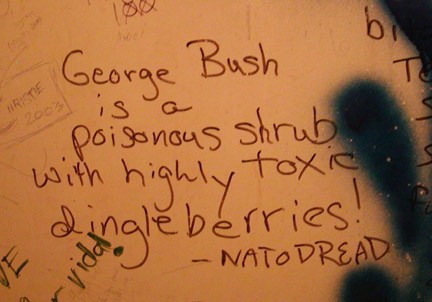 George Bush
is a
poisonous shrub
with highly toxic
dingleberries!
-NATODREAD
2003
vida!